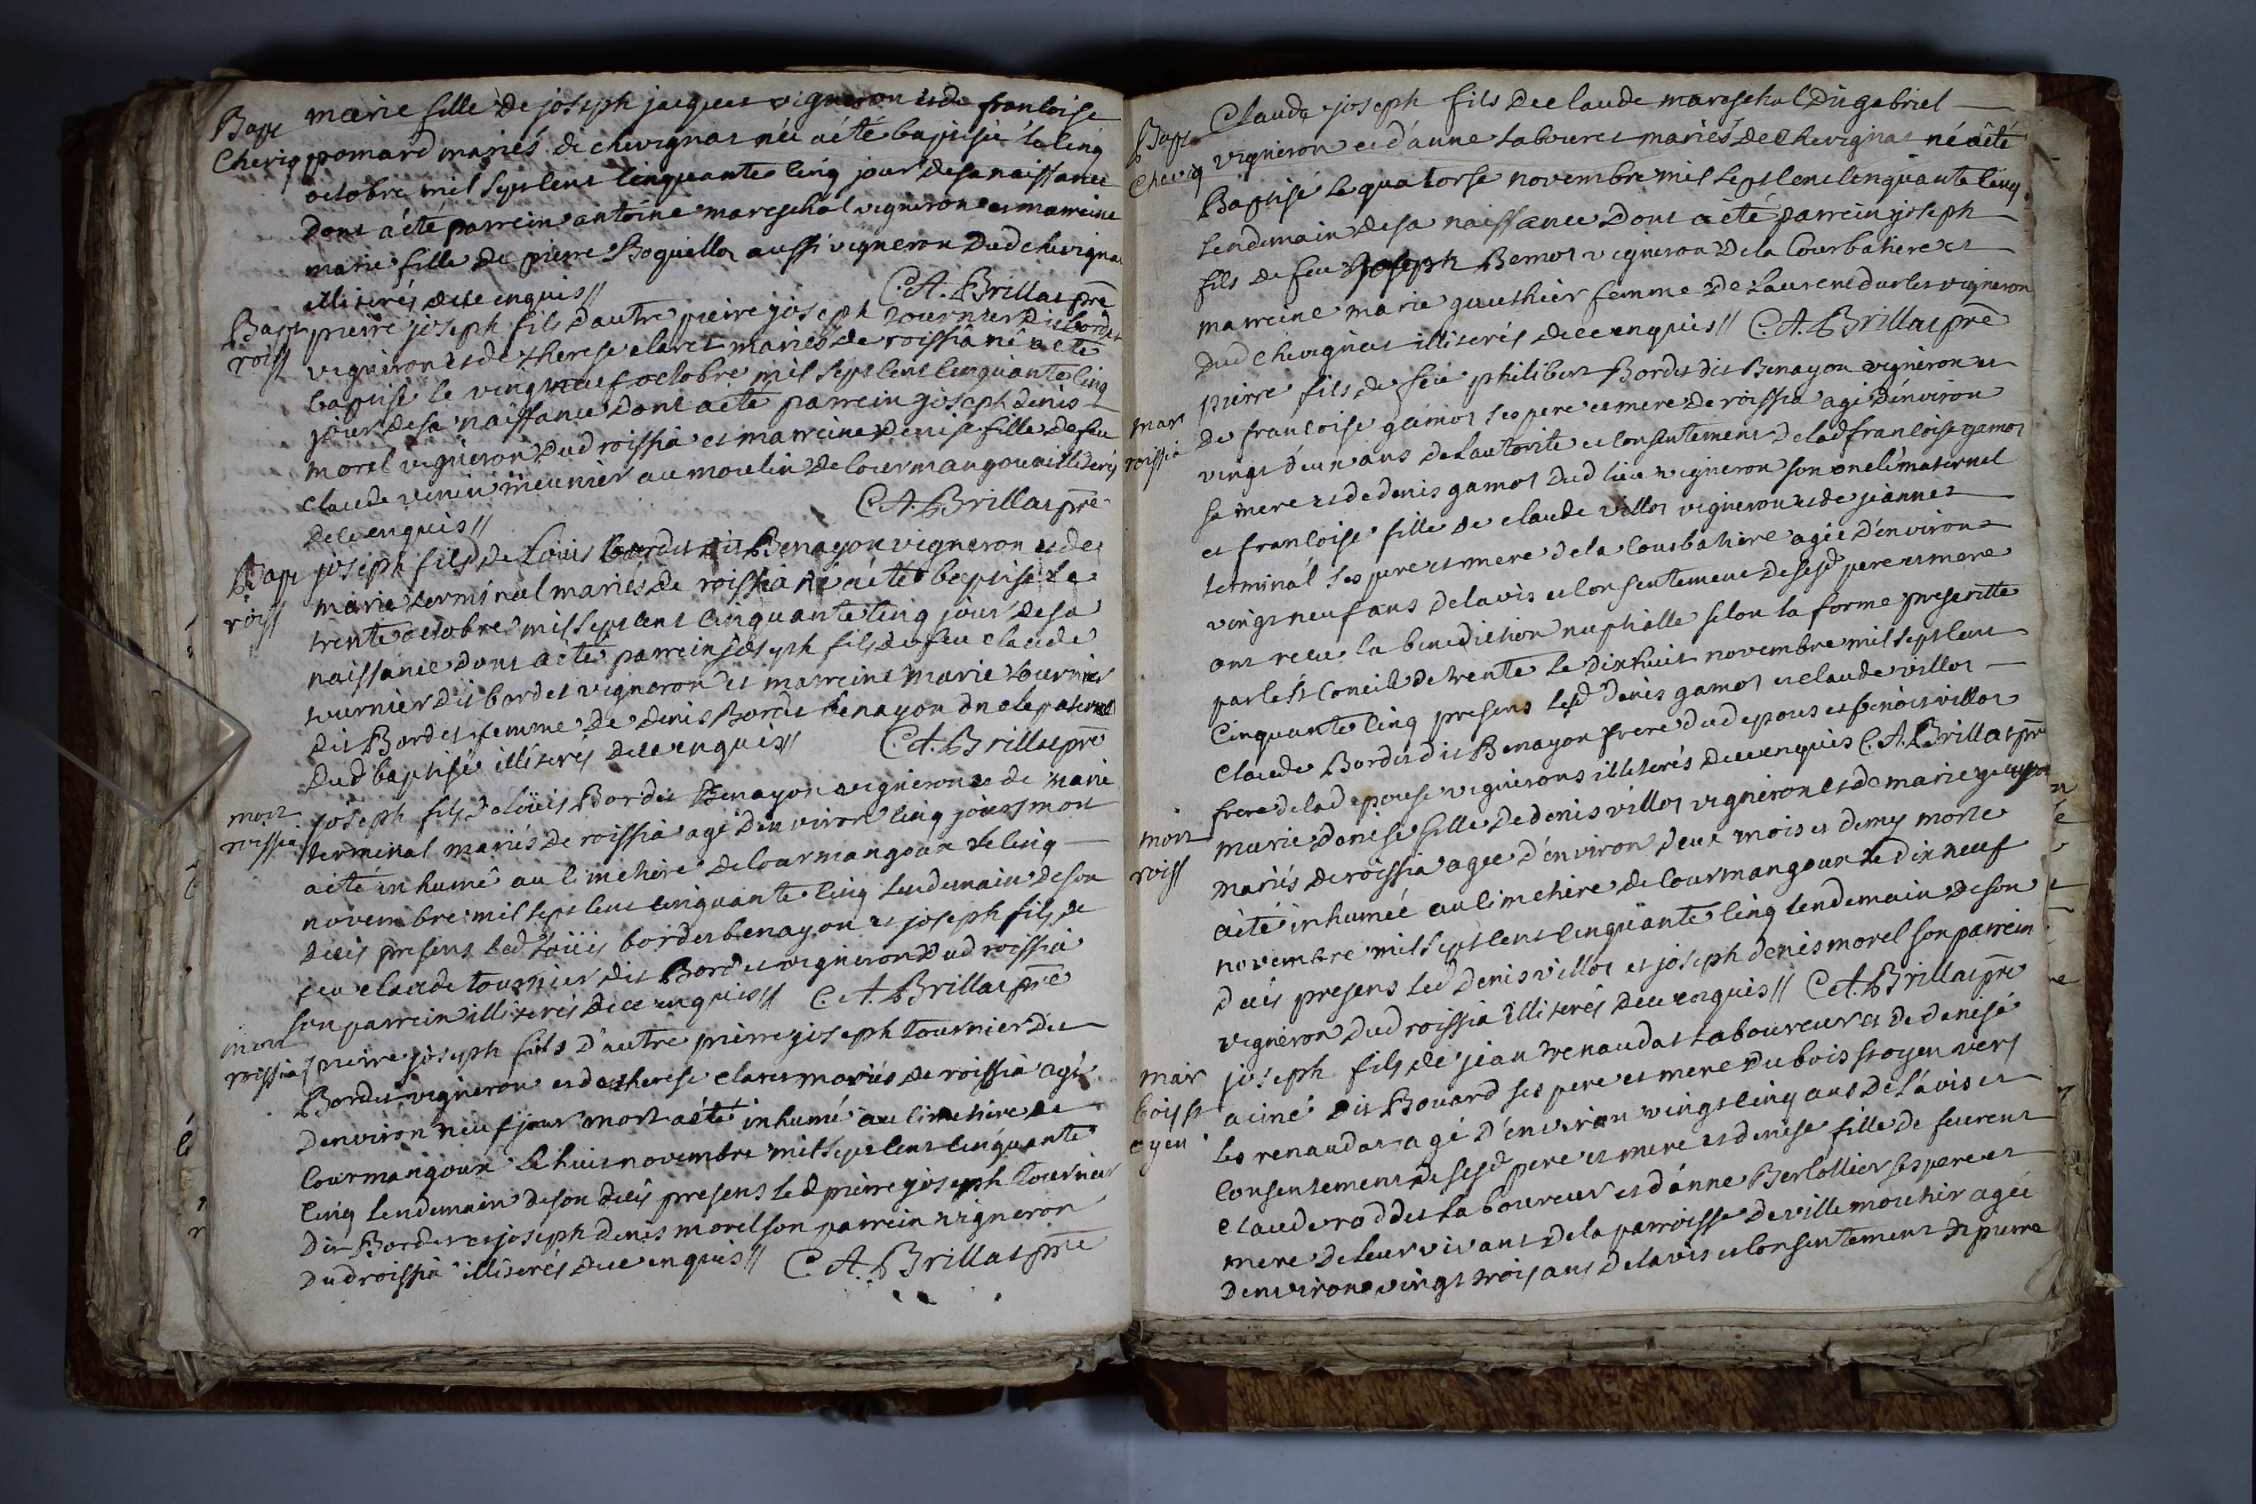 Bapt
Cheviq
marie fille de joseph jacques vigneron et de francoise
pomard mariés de chevignat née a été baptisée le cinq
octobre mil sept cent cinquante cinq jour de sa naissance
dont a été parrein antoine mareschal vigneron et marreine
marie fille de pierre Boquillot aussi vigneron dud chevigna
illiterés de ce enquis// C. A. Brillat pre
Bapt
roiss
pierre joseph fils d'autre pierre joseph tournier dit bordet
vigneron et de therese claret mariés de roissia né a été
baptisé le vingt neuf octobre mil sept cent cinquante cinq
jour de sa naissance dont a été parrein joseph denis
morel vigneron dud roissia et marreine denise fille de feu
claude meunier au moulin de courmangoux illiterés
de ce enquis// C. A. Brillat pre
Bapt
roiss
joseph fils de Louis bordet dit Benayon vigneron et de
marie terminal mariés de roissia né a été baptisé le
trente octobre mil sept cent cinquante cinq jour de sa
naissance dont a été parrein joseph fils de feu claude
tournier dit bordet vigneron et marreine marie tournier
dit Bordet femme de denis Bordet benayon oncle paternel
dud baptisé illiterés de ce enquis// C. A. Brillat pre
mort
roissia
joseph fils de loüis Bordet Benayon vigneron et de marie
terminal mariés de roissia agé d'environ cinq jours mort
a été inhumé au cimetiere de courmangoux le cinq
novembre mil sept cent cinquante cinq lendemain de son
decés presens led Loüis bordet benayon et joseph fils de
feu claude tournier dit Bordet vigneron dud roissia
son parrein illiterés de ce enquis// C. A. Brillat pre
mort
roissia
pierre joseph fils d'autre pierre joseph tournier dit
Bordet vigneron et de therese claret mariés de roissia agé
d'environ neuf jour mort a été inhumé au cimetiere de
Courmangoux le huit novembre mil sept cent cinquante
cinq lendemain de son decés presens led pierre joseph tournier
dit Bordet et joseph denis morel son parrein vigneron
dud roissia illiterés de ce enquis// C. A. Brillat pre
Bapt
Cheviq
Claude joseph fils de claude mareschal dit gabriel
vigneron et d'anne Labouret mariés de Chevignat né a été
Baptisé le quatorse novembre mil sept cent cinquante cinq
lendemain de sa naissance dont a été parrein joseph
fils de feu joseph Bernot vigneron de la Courbatiere et
marreine marie gauthier femme de Laurent durlet vigneron
dud Chevignat illiterés de ce enquis// C. A. Brillat pre
mar
roissia
pierre fils de feu philibert Bordet dit Benayon vigneron et
de francoise gamot ses pere et mere de roissia agé d'environ
vingt d'eun ans de l'autorité et consentement de lad francoise gamot
sa mere et de denis gamot dud lieu vigneron son oncle maternel
et francoise fille de claude villot vigneron et de jeanne
terminal ses pere et mere de la Courbatiere agée d'environ
vingt neuf ans de l'avis et consentement de sesd pere et mere
ont receu la benediction nuptialle selon la forme prescritte
par le st Concil de trente le dixhuit novembre mil sept cent
Cinquante cinq presens lesd denis gamot et claude villot
Claude Bordet dit Benayon frere dud epoux et benoist villot
frere de lad epouse vignerons illiterés de ce enquis C. A. Brillat pre
mort
roiss
marie denise fille de denis villot vigneron et de marie
mariés de roissia agée d'environ deux mois et demy morte
a été inhumée au cimetiere de Courmangoux le dix neuf
novembre mil sept cent cinquante cinq lendemain de son
decés presens led denis villot et joseph denis morel son parrein
vigneron dud roissia illiterés de ce enquis// C. A. Brillat pre
mar
bois st
oyen
joseph fils de jean renaudat Laboureur et de denise
ainé dit Bouard ses pere et mere du bois st oyen vers
les renaudat agé d'environ vingt cinq ans de l'avis et
consentement de sesd pere et mere et denise fille de feu rent
claude roddet laboureur et d'anne Bertollier ses pere et
mere de leur vivant de la parroisse de ville moutier agée
d'environ vingt trois ans de l'avis et consentement de pierre